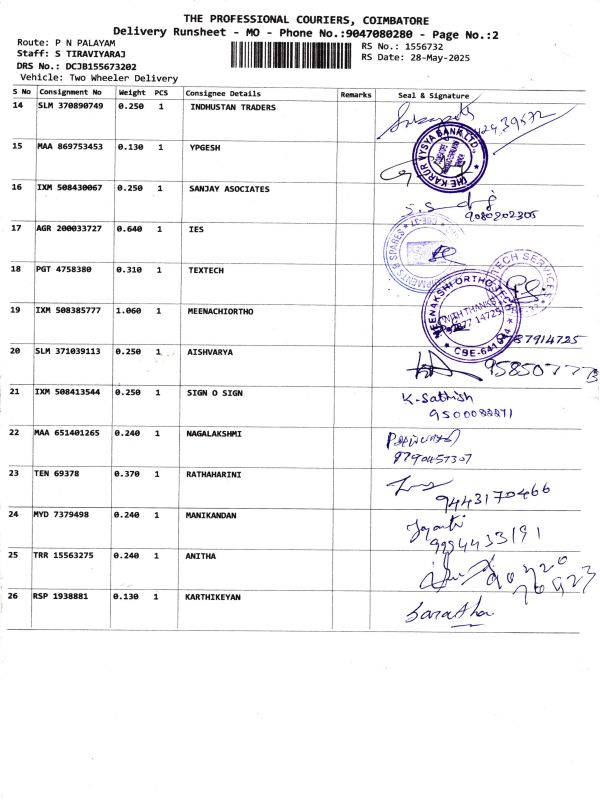 THE PROFESSIONAL COURIERS, COIMBATORE
Delivery Runsheet - MO - Phone No.:9047080280 - Page No.:2
Route: P N PALAYAM
Staff: S TIRAVIYARAJ
DRS No.: DCJB155673202
Vehicle: Two Wheeler Delivery
RS No.: 1556732
RS Date: 28-May-2025
S No Consignment No Weight PCS Consignee Details Remarks Seal & Signature
14 SLM 370890749 0.250 1 INDHUSTAN TRADERS
15 MAA 869753453 0.130 1 YPGESH
THE KARUR VYSYA BANK LTD.,
16 IXM 508430067 0.250 1 SANJAY ASOCIATES
9080202305
17 AGR 200033727 0.640 1 IES
18 PGT 4758380 0.310 1 TEXTECH
TECH SERVICES
19 IXM 508385777 1.060 1 MEENACHIORTHO
MEENAKSHI ORTHO TECH
WITH THANKS
20 SLM 371039113 0.250 1 AISHVARYA
21 IXM 508413544 0.250 1 SIGN O SIGN K-Sathish
22 MAA 651401265 0.240 1 NAGALAKSHMI
8790457307
23 TEN 69378 0.370 1 RATHAHARINI
9443170466
24 MYD 7379498 0.240 1 MANIKANDAN Jayanti
9994433191
25 TRR 15563275 0.240 1 ANITHA
26 RSP 1938881 0.130 1 KARTHIKEYAN